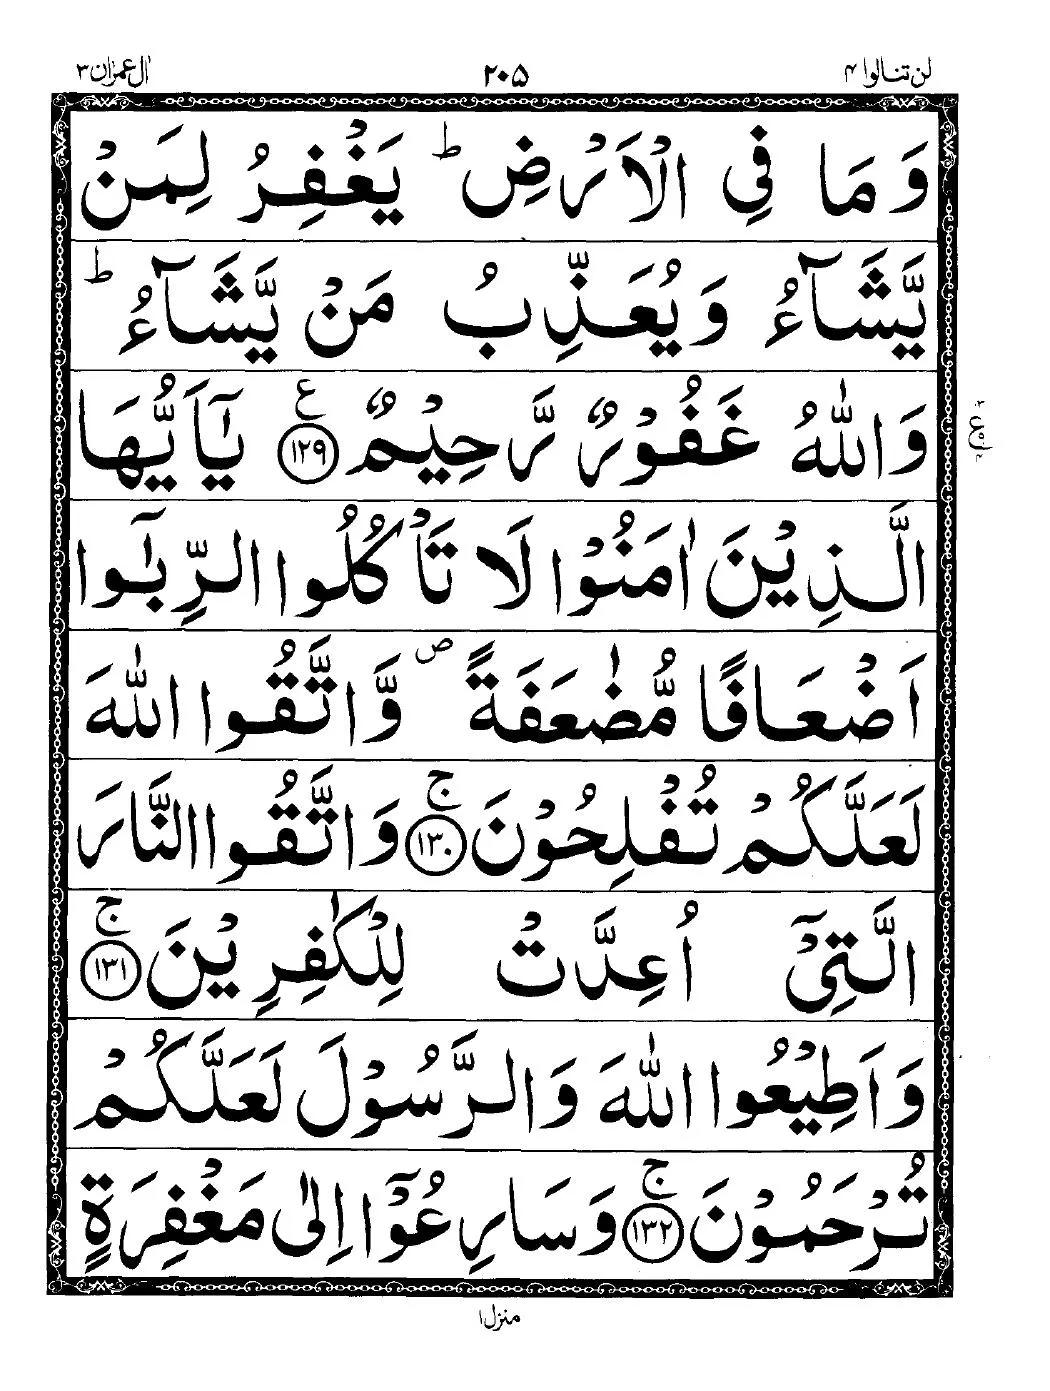 لن تنالوا ۴ ۲۰۵ اٰل عمرٰن ۳
وَ مَا فِي الْاَرْضِ ؕ يَغْفِرُ لِمَنْ
يَّشَآءُ وَ يُعَذِّبُ مَنْ يَّشَآءُ ؕ
وَاللّٰهُ غَفُوْرٌ رَّحِيْمٌ ﴿۱۲۹﴾ ع يٰۤاَيُّهَا
الَّذِيْنَ اٰمَنُوْا لَا تَاْكُلُوا الرِّبٰۤوا
اَضْعَافًا مُّضٰعَفَةً ۪ وَّاتَّقُوا اللّٰهَ
لَعَلَّكُمْ تُفْلِحُوْنَ ﴿۱۳۰﴾ ۚ وَاتَّقُوا النَّارَ
الَّتِيْۤ اُعِدَّتْ لِلْكٰفِرِيْنَ ﴿۱۳۱﴾ ۚ
وَاَطِيْعُوا اللّٰهَ وَالرَّسُوْلَ لَعَلَّكُمْ
تُرْحَمُوْنَ ﴿۱۳۲﴾ ۚ وَسَارِعُوْۤا اِلٰى مَغْفِرَةٍ
منزل ۱